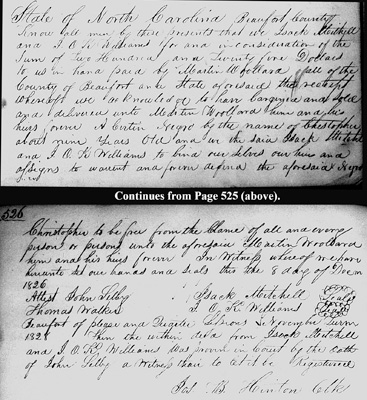 State of North Carolina Beaufort County
Know all men by these presents that we Isack Mitchell
and J. O. K. Williams for and in consideration of the
Sum of two Hundred and Twenty five Dollars
to us in hand paid by Martin Woollard all of the
County of Beaufort and State aforesaid the receipt
whereof we acknowledged to have bargained and Sold
and delivered unto Martin Woollard him and his
heirs forever A Certin Negro by the name of Christopher
about nine years Old and we the said Isack Mitchell
and J. O. K Williams to bind our selves our heirs and
assigns to warrent and forever defend the aforesaid Negro
Continues from Page 525 (above).
526
Christopher to be free from the Clame of all and every
person or persons unto the aforesaid Martin Woollard
him and his heirs forever In Witness whereof we have
hereunto set our hands and seals this the 8 day of Decem
1826
Attest John Selby Isack Mitchell Seal
Thomas Walker J. O. K. Williams Seal
Beaufort of pleas and Quarter Sessions November Term
1828 Then the within deed from Isack Mitchell
and J. O. K. Williams was proven in Court by the oath
of John Selby a Witness thair to Let it be Registered
Hinton Clk